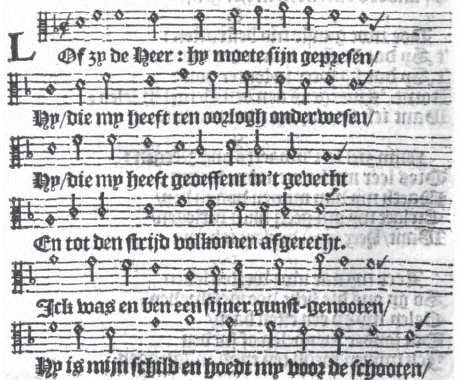 LOf zy de Heer: hy moete sijn gepresen/
Hy/die my heeft ten oorlogh onderwesen/
Hy/die my heeft geoeffent in't gevecht
En tot den strijd volkomen afgerecht.
Ick was en ben een sijner gunst-genooten/
Hy is mijn schild en hoedt my voor de schooten/